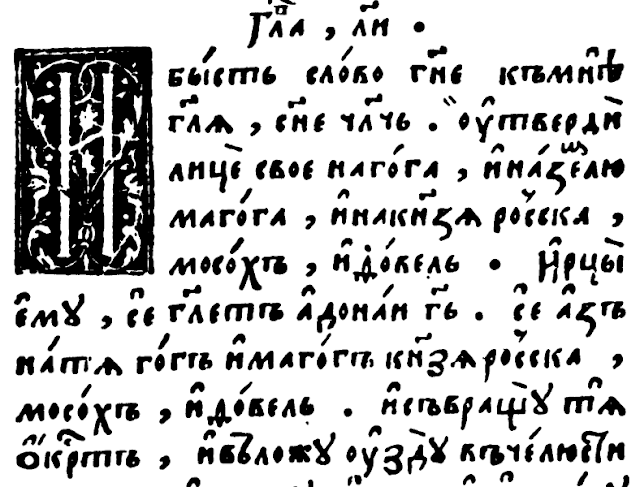 Гл҃а , л҃и .
И бы́сть сло́во гн҃е къмнѣ̀
гл҃ѧ , сн҃е чл҃чь . оу҆тверди̏
лице̏ свое наго́га , и҆на́ꙁⷨелю
маго́га , и҆накн҃ꙁѧ рос҃ска ,
мосо́хъ , и҆до́вель . И҆рцы̏
е҆мꙋ , се҆ гл҃етъ а҆дона́и г҃ь . се҆ а҆ꙁъ
на́тѧ го́гъ и҆маго́гъ кн҃ꙁѧ рос҃ска ,
мосо́хъ , и҆до́вель . и҆съвращꙋ̏ тѧ҆
ѻ҆крⷭ҇тъ , и҆въложꙋ оу҆ꙁдꙋ̏ въче́люсти